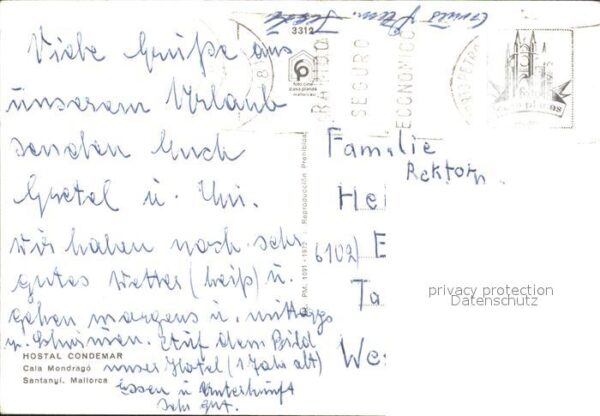 Viele Grüße aus
unserem Urlaub
senden Euch
Gretel u. Uwi.
Wir haben noch sehr
gutes Wetter (heiß) u.
gehen morgens u. mittags
z. Schwimmen. Auf dem Bild
unser Hotel (1 Jahr alt)
Essen u Unterkunft
sehr gut.
HOSTAL CONDEMAR
Cala Mondragó
Santanyi, Mallorca
3312
RAPIDO
SEGURO
ECONOMICO
PM. 1091-1972
Reproducción Prohibida
Familie
Rektorn
Hei
6102) E
Ta
We
privacy protection
Datenschutz